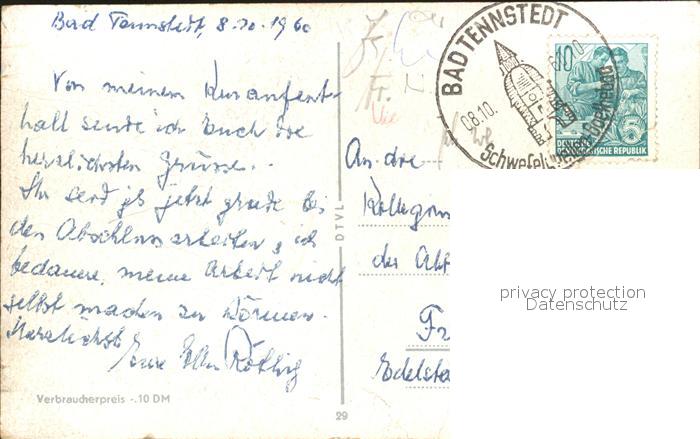 Bad Tennstedt, 8.10.1960
Von meinem Kuraufent-
halt sende ich Euch die
herzlichsten Grüsse.
Ihr seid ja jetzt grade bei
den Abschlussarbeiten, ich
bedauere, meine Arbeit nicht
selbst machen zu können.
Herzlichst
Eure Ellen Röthig
Verbraucherpreis -.10 DM
DTVL
29
BAD TENNSTEDT
08.10.
Schwefel
10
5
DEUTSCHE
DEMOKRATISCHE REPUBLIK
Fr.
An die
Kolleginn
der Abt
Fr
Edelsta
privacy protection
Datenschutz